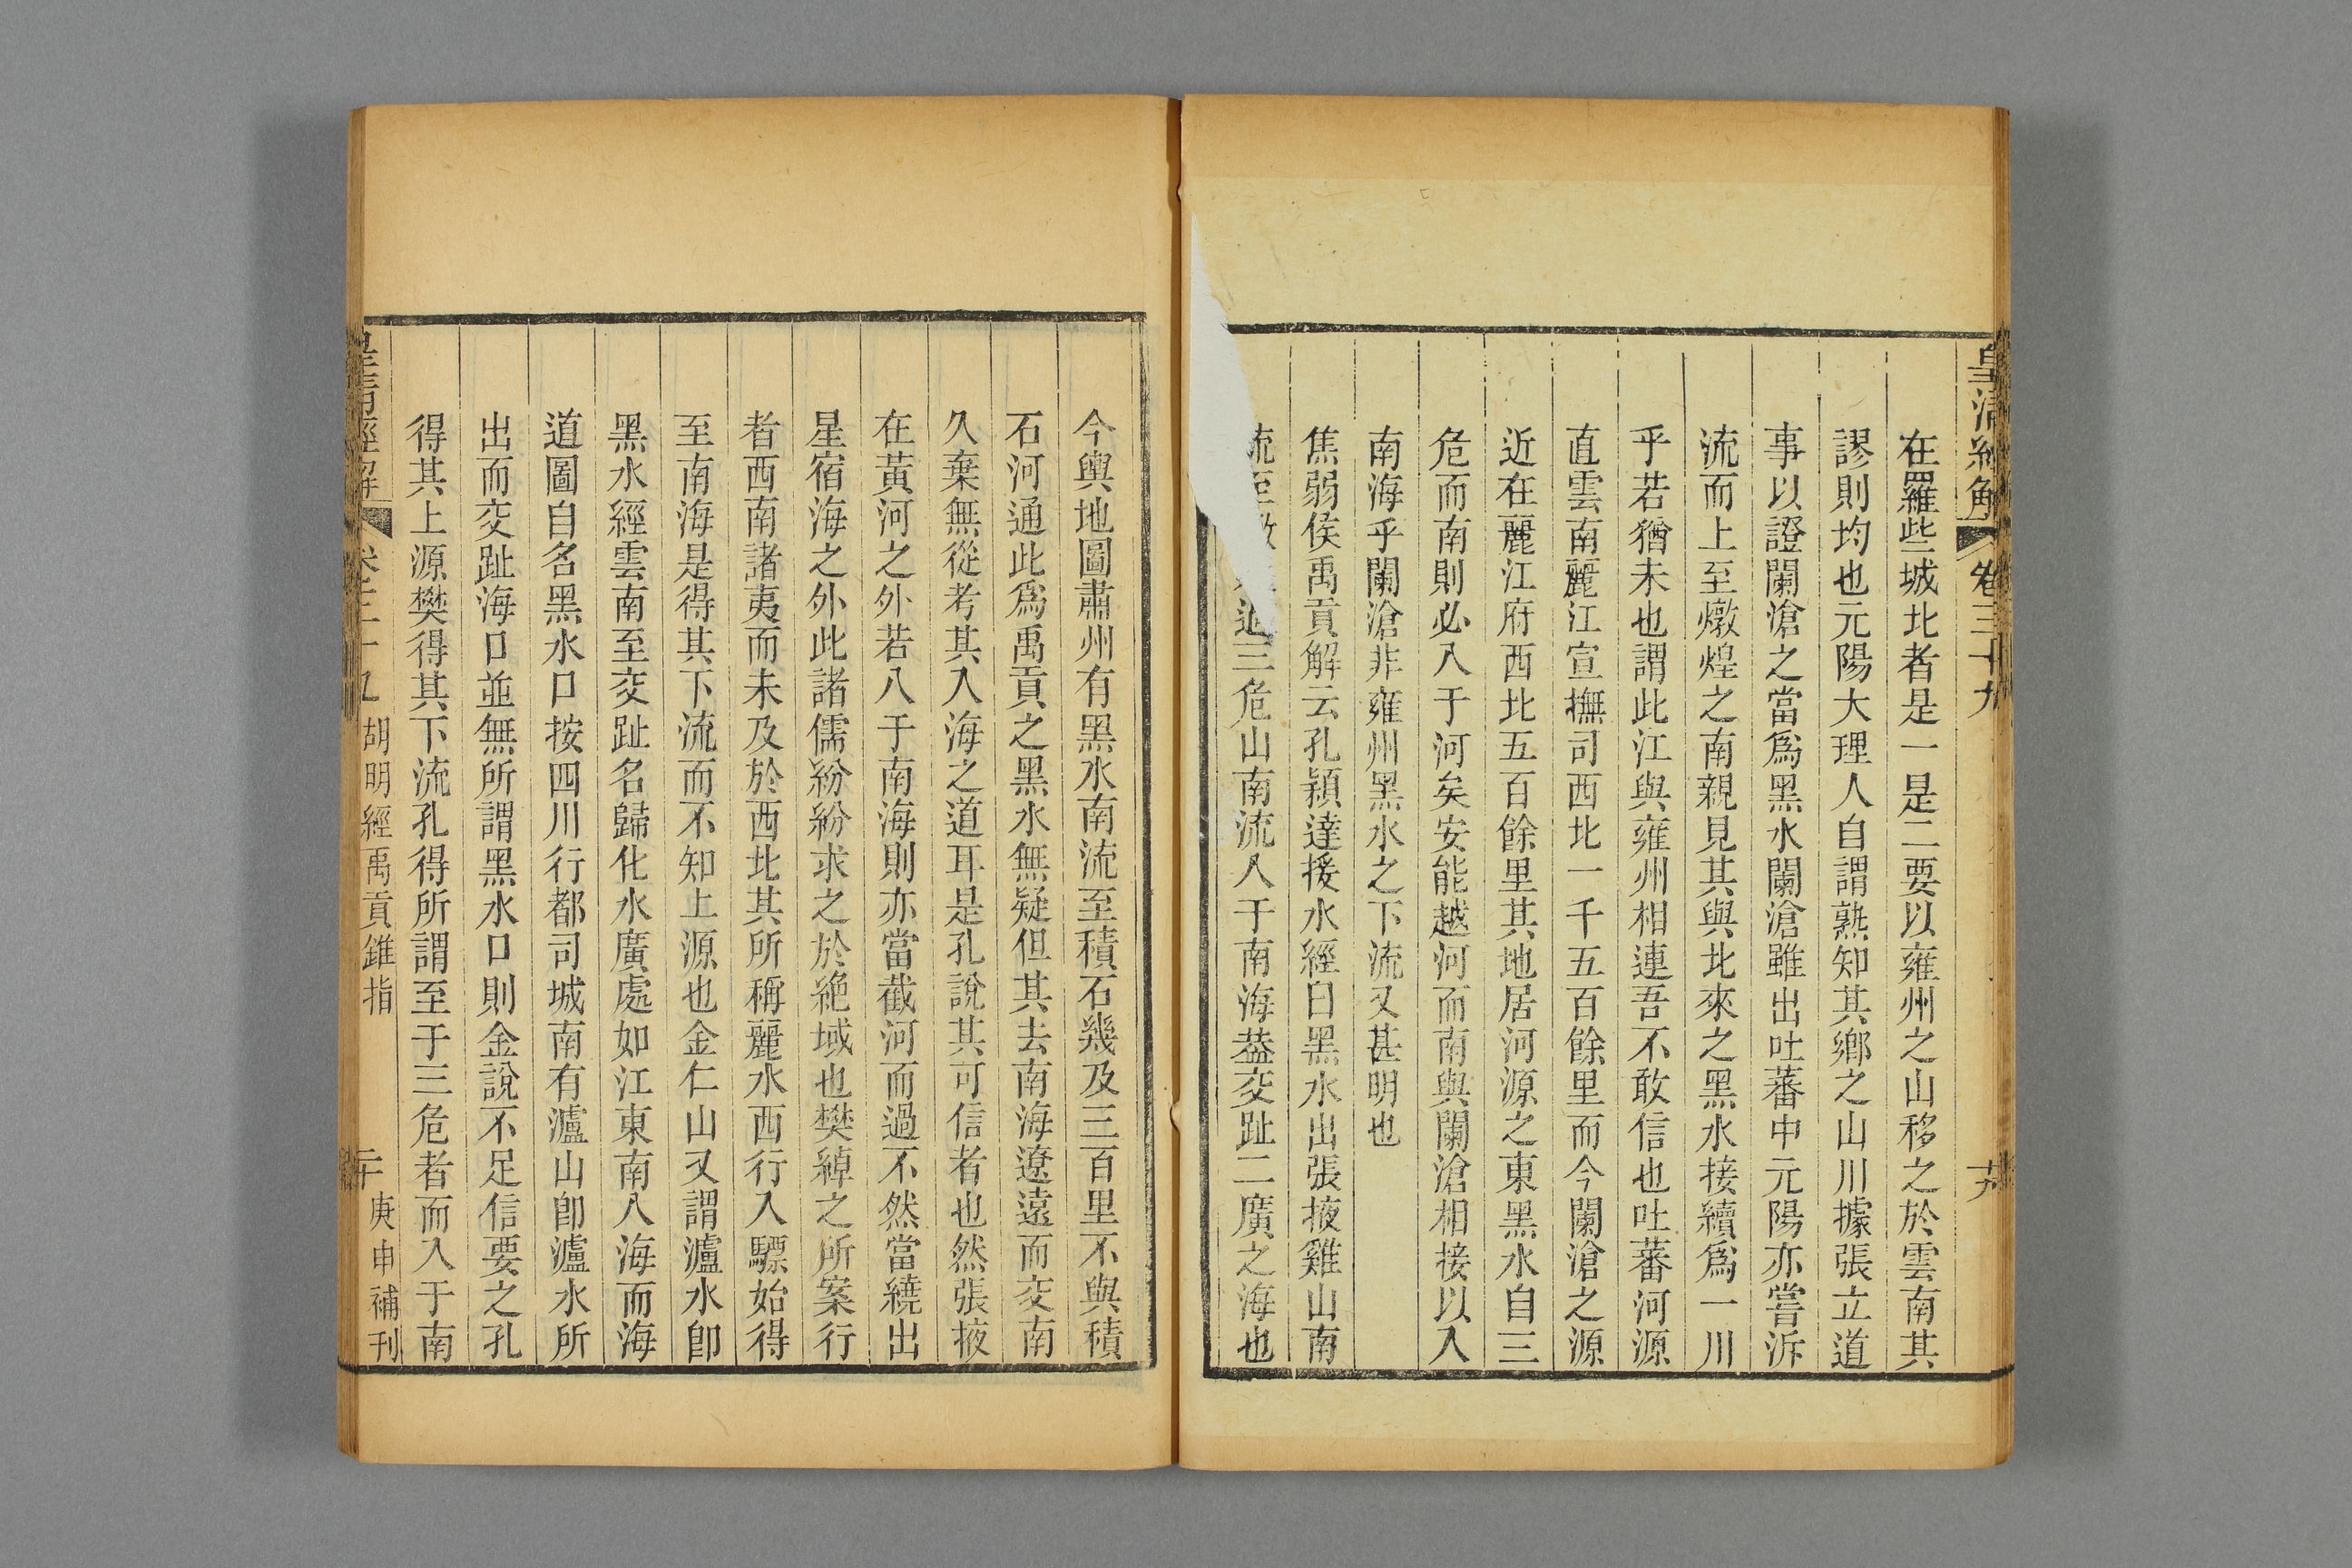 皇清經解 卷三十九 十九
在羅些城北者是一是二要以雍州之山移之於雲南其
謬則均也元陽大理人自謂熟知其鄉之山川據張立道
事以證闌滄之當爲黑水闌滄雖出吐蕃中元陽亦嘗泝
流而上至燉煌之南親見其與北來之黑水接續爲一川
乎若猶未也謂此江與雍州相連吾不敢信也吐蕃河源
直雲南麗江宣撫司西北一千五百餘里而今闌滄之源
近在麗江府西北五百餘里其地居河源之東黑水自三
危而南則必入于河矣安能越河而南與闌滄相接以入
南海乎闌滄非雍州黑水之下流又甚明也
焦弱侯禹貢解云孔穎達援水經曰黑水出張掖雞山南
流至 過三危山南流入于南海葢交趾二廣之海也
今輿地圖肅州有黑水南流至積石幾及三百里不與積
石河通此爲禹貢之黑水無疑但其去南海遼遠而交南
久棄無從考其入海之道耳是孔說其可信者也然張掖
在黃河之外若入于南海則亦當截河而過不然當繞出
星宿海之外此諸儒紛紛求之於絶域也樊綽之所案行
者西南諸夷而未及於西北其所稱麗水西行入驃始得
至南海是得其下流而不知上源也金仁山又謂瀘水卽
黑水經雲南至交趾名歸化水廣處如江東南入海而海
道圖自名黑水口按四川行都司城南有瀘山卽瀘水所
出而交趾海口並無所謂黑水口則金說不足信要之孔
得其上源樊得其下流孔得所謂至于三危者而入于南
皇清經解 卷三十九 胡明經禹貢錐指 二十 庚申補刊